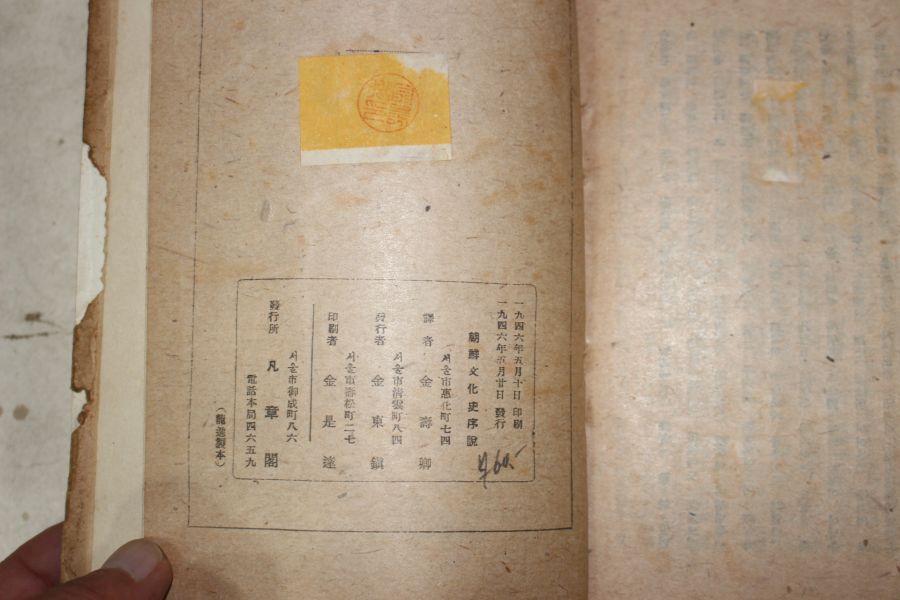 一九四六年五月十日 印刷
一九四六年五月廿日 發行
朝鮮文化史序說
¥60.-
서울市惠化町七四
譯者 金壽卿
서울市淸雲町八四
發行者 金東鎭
서울市壽松町二七
印刷者 金是達
서울市御成町八六
發行所 凡章閣
電話本局四六五九
(龍進製本)